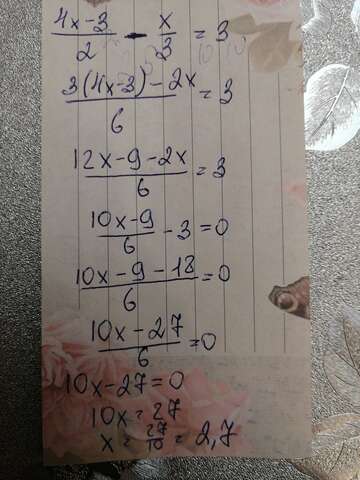 (4x-3)/2 - x/3 = 3
(3(4x-3)-2x)/6 = 3
(12x-9-2x)/6 = 3
(10x-9)/6 - 3 = 0
(10x-9-18)/6 = 0
(10x-27)/6 = 0
10x-27=0
10x=27
x = 27/10 = 2,7